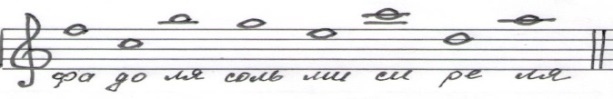 фа до ля соль ми си ре ля